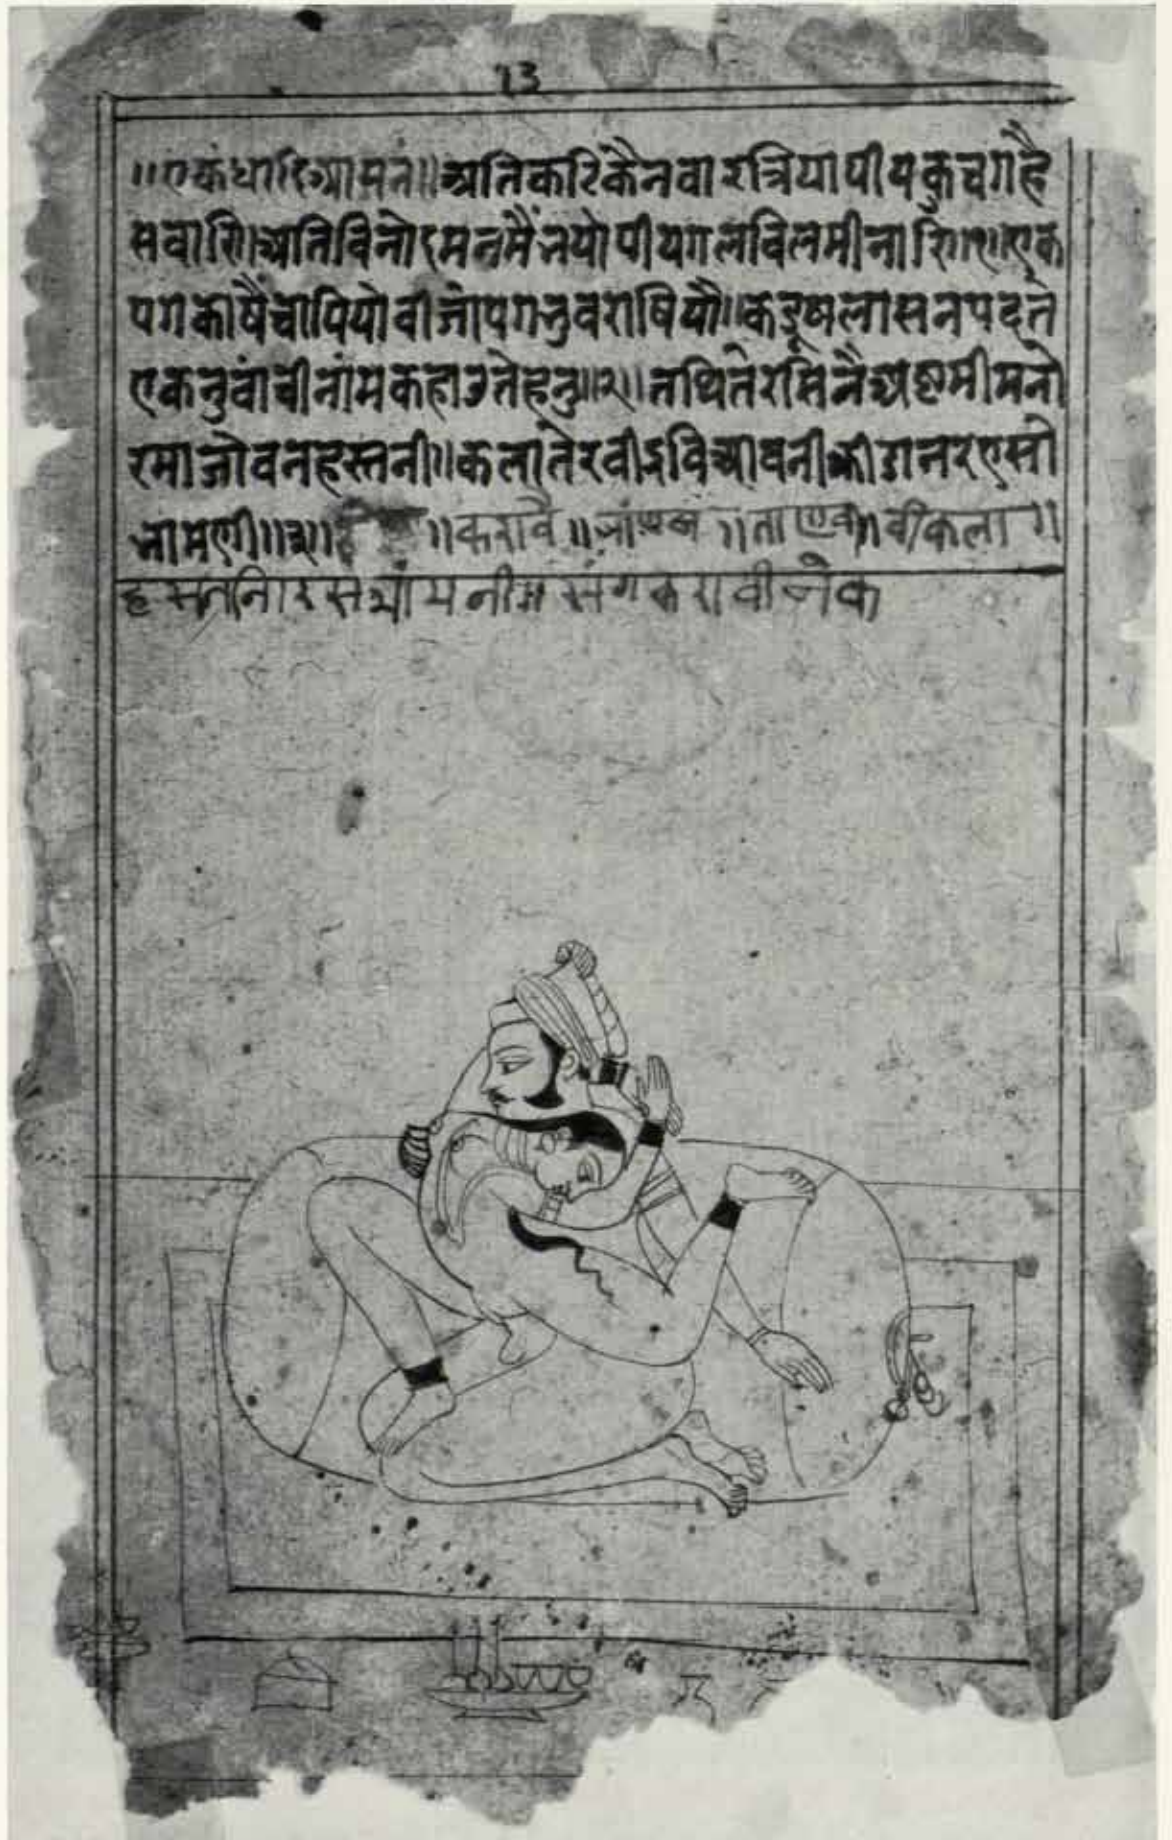 13
॥एकंधादिआसनं॥अतिकटिकैनवारत्रियापीयकुचगहै
सवारि॥अतिविनोदमनमैंनयोपीयगलविलमीनारि॥१॥एक
पगकोषैंचोपियोवीजोपगनुवराषियौ॥कडूषलासनपदते
एकनुवांवीनांमकहाउतेहनु॥२॥तथितेरसिनैअष्टमीमनो
रमाजोवनहस्तनी॥कलातेरवीद्रविआवनीक्रीडानरएसी
भामणी॥३॥ ॥करावै॥ ॥ वीकला॥
हसतनिारस संगकरावीजेक